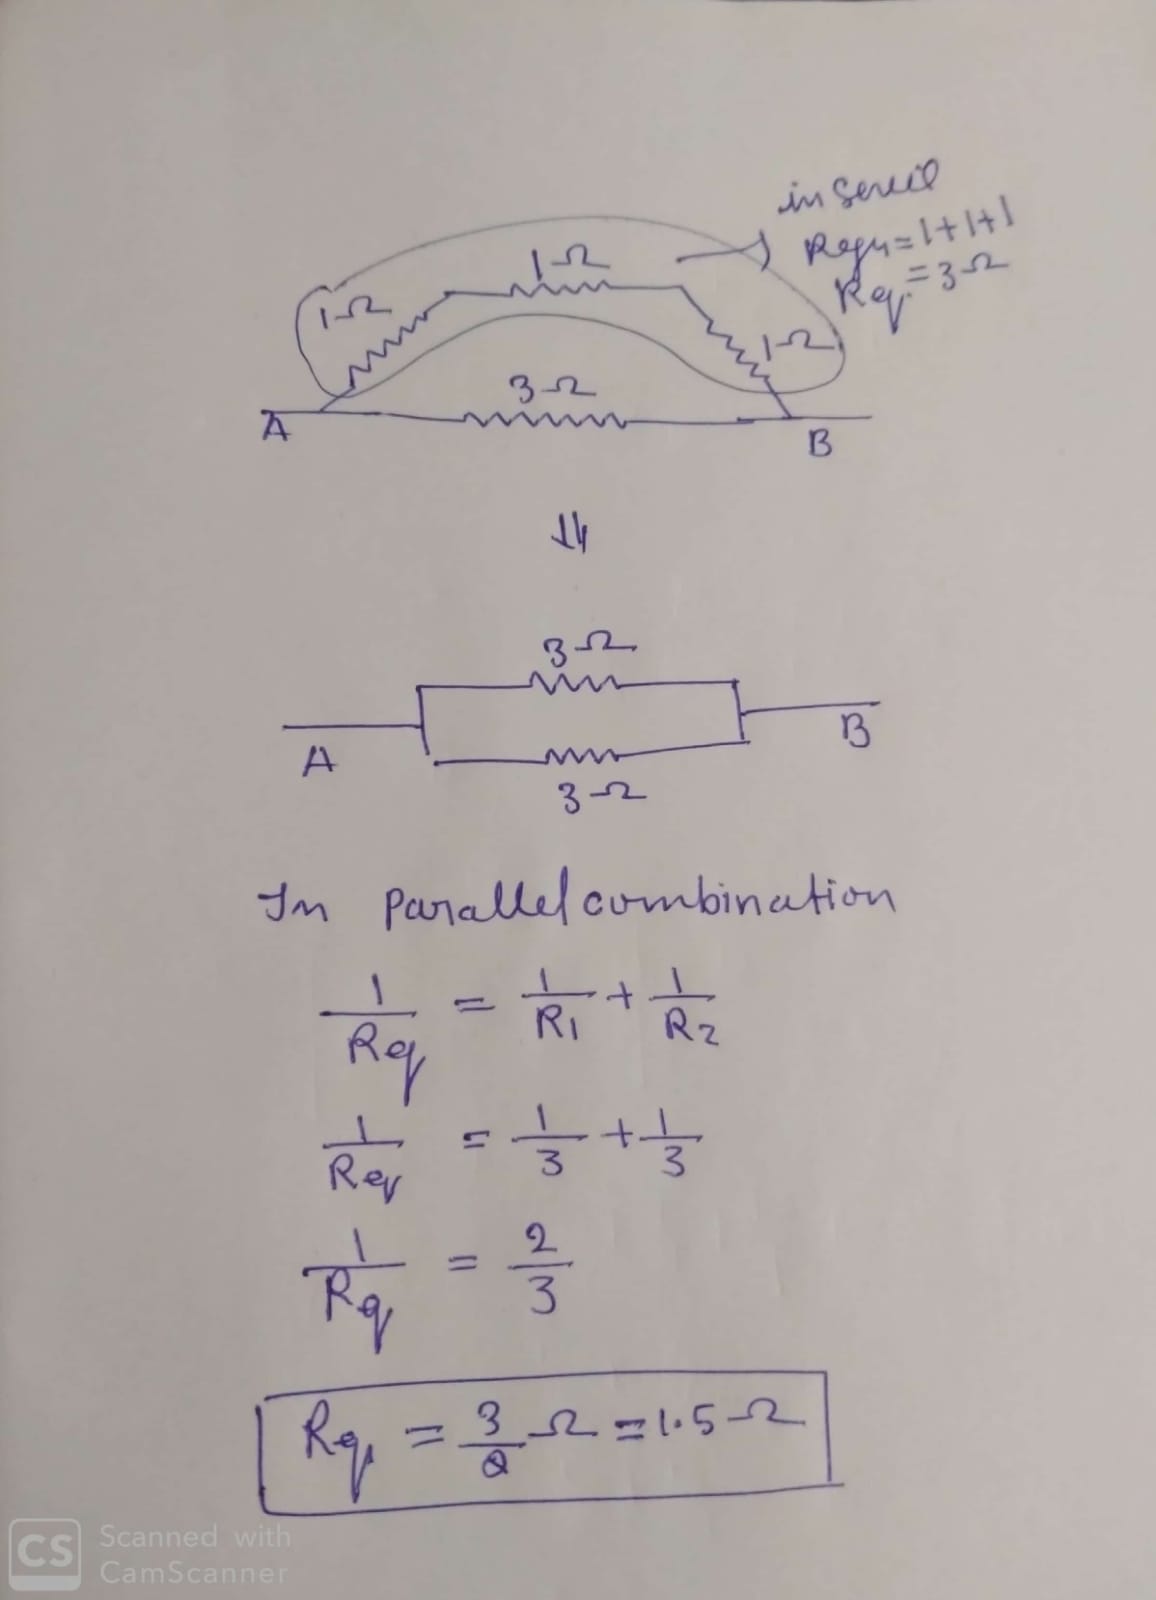 in Serie
Requ = 1+1+1
Req. = 3Ω
1Ω
1Ω
1Ω
3Ω
A
B
3Ω
A
B
3Ω
In Parallel combination
1/Req = 1/R1 + 1/R2
1/Req = 1/3 + 1/3
1/Req = 2/3
Req = 3/2 Ω = 1.5Ω
CS Scanned with
CamScanner